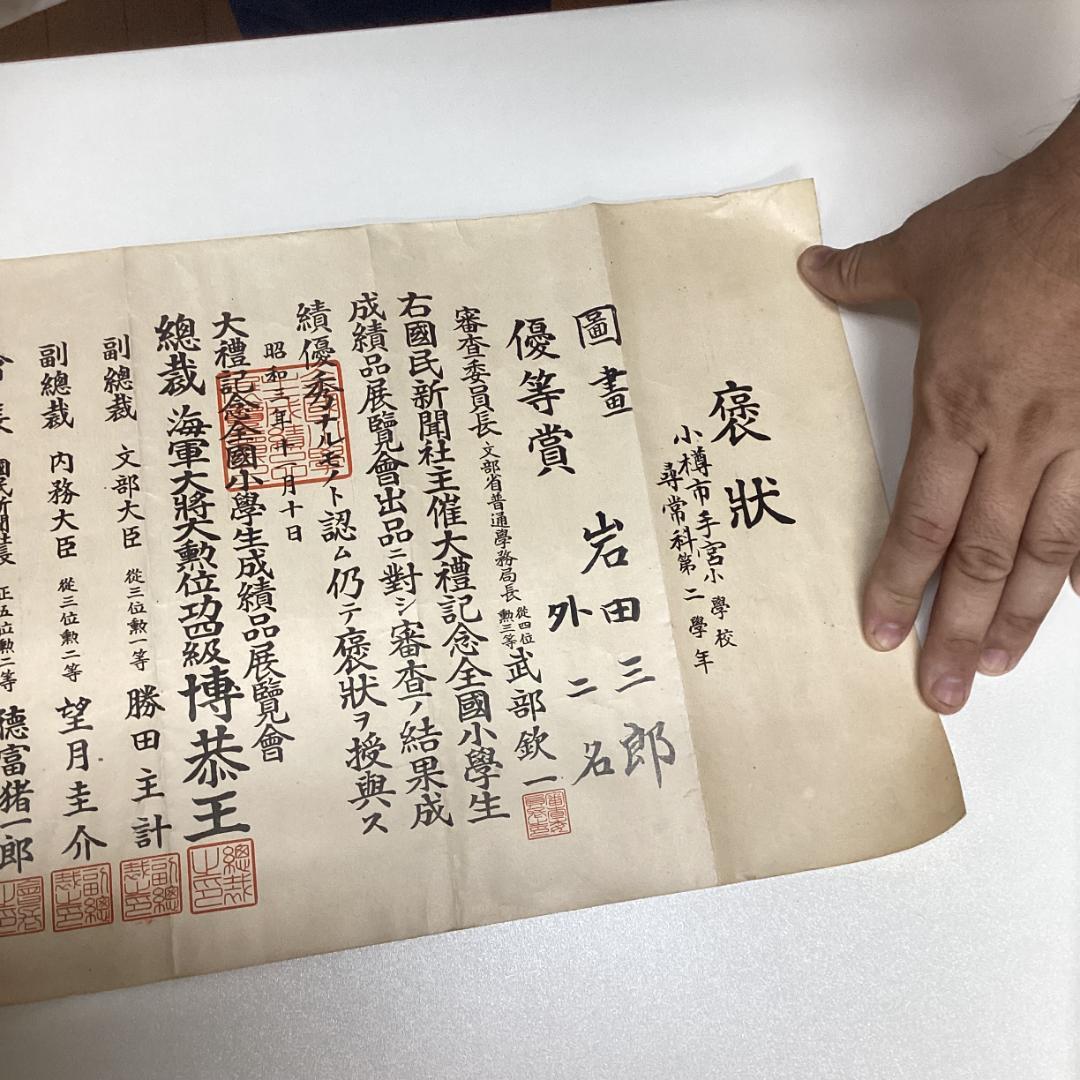 褒狀
小樽市手宮小學校
尋常科第二學年
圖畫 岩田三郎
外二名
優等賞
審查委員長 文部省普通學務局長 從四位 勲三等 武部欽一
右國民新聞社主催大禮記念全國小學生
成績品展覽會出品ニ對シ審查ノ結果成
績優秀ナルモノト認ム仍テ褒狀ヲ授與ス
昭和三年十一月十日
大禮記念全國小學生成績品展覽會
總裁 海軍大將大勲位功四級 博恭王
總裁之印
副總裁 文部大臣 從三位勲一等 勝田主計
副總裁之印
副總裁 內務大臣 從三位勲二等 望月圭介
副總裁之印
會長 國民新聞社長 正五位勲二等 德富猪一郎